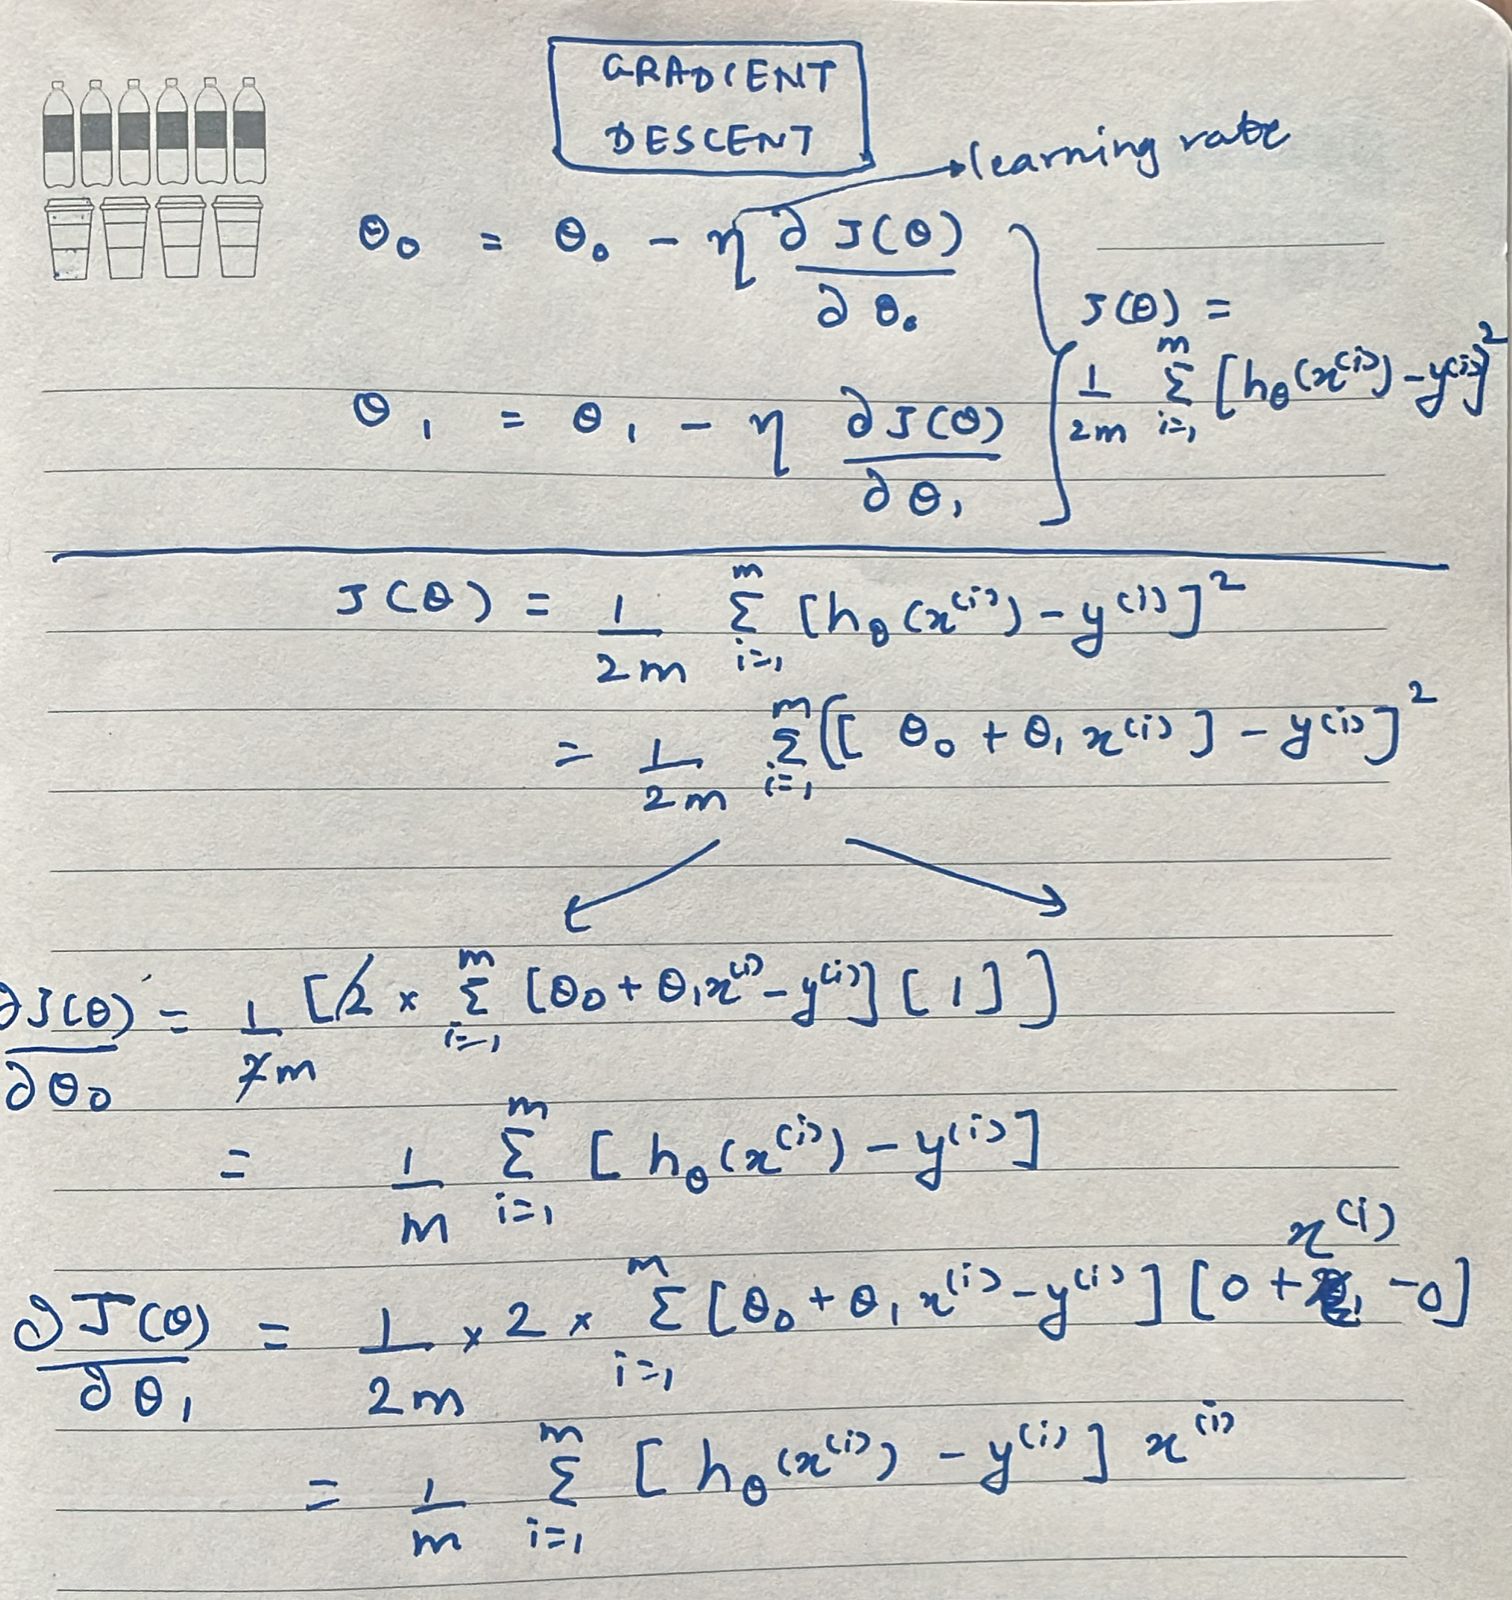 GRADIENT
DESCENT
learning rate
θ₀ = θ₀ - η ∂J(θ)/∂θ₀
θ₁ = θ₁ - η ∂J(θ)/∂θ₁
J(θ) =
1/2m Σ_{i=1}^{m} [h_θ(x⁽ⁱ⁾) - y⁽ⁱ⁾]²
J(θ) = 1/2m Σ_{i=1}^{m} [h_θ(x⁽ⁱ⁾) - y⁽ⁱ⁾]²
= 1/2m Σ_{i=1}^{m} [[θ₀ + θ₁x⁽ⁱ⁾] - y⁽ⁱ⁾]²
∂J(θ)/∂θ₀ = 1/2m [2 × Σ_{i=1}^{m} [θ₀ + θ₁x⁽ⁱ⁾ - y⁽ⁱ⁾] [1]]
= 1/m Σ_{i=1}^{m} [h_θ(x⁽ⁱ⁾) - y⁽ⁱ⁾]
∂J(θ)/∂θ₁ = 1/2m × 2 × Σ_{i=1}^{m} [θ₀ + θ₁x⁽ⁱ⁾ - y⁽ⁱ⁾] [0 + x⁽ⁱ⁾ - 0]
= 1/m Σ_{i=1}^{m} [h_θ(x⁽ⁱ⁾) - y⁽ⁱ⁾] x⁽ⁱ⁾